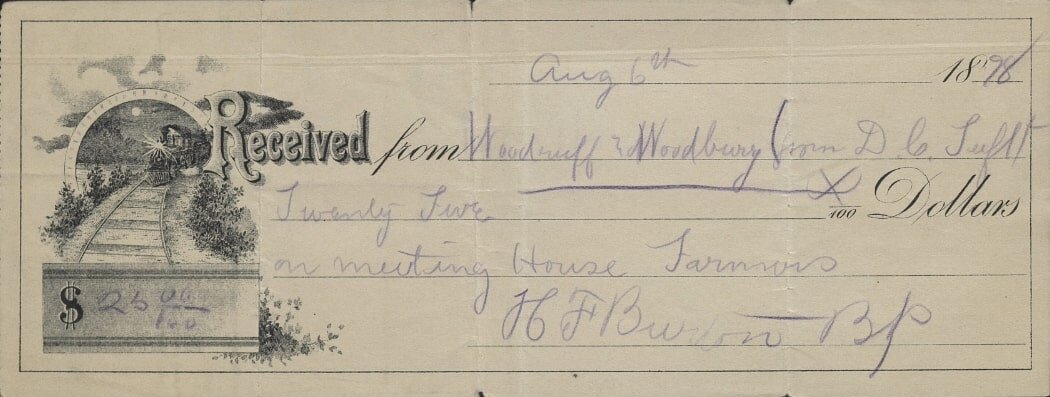 Aug 6th 1898
Received from Woodruff & Woodbury from D. C. Tufft
Twenty Five X/100 Dollars
on meeting House Farmors
$ 25 00/100
H F Burton BP